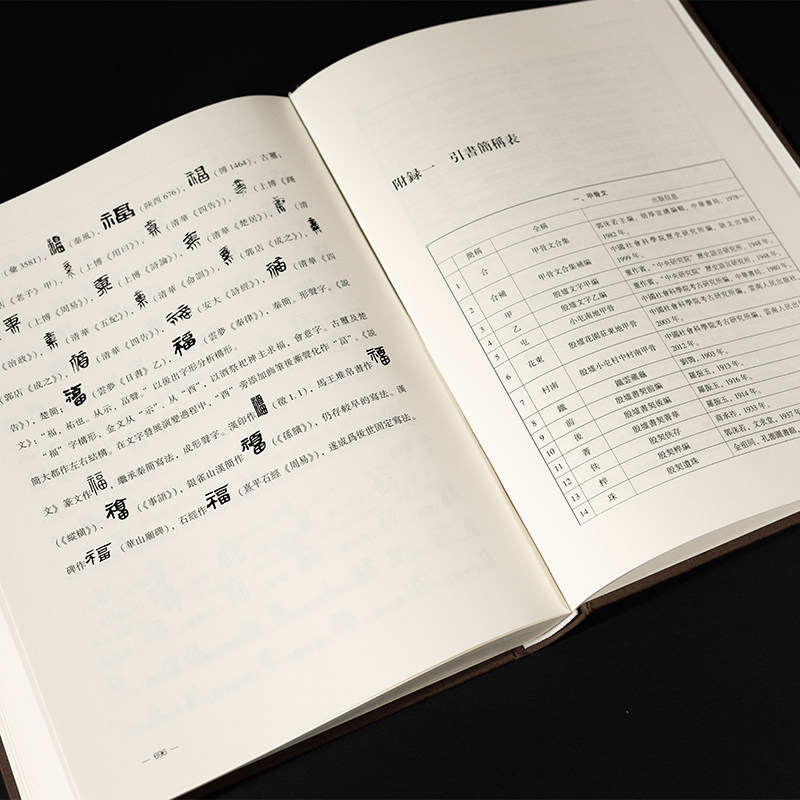 （彙 3581），福（秦風），福（陝西 676），福（博 1464），古璽；
《老子》甲），（上博《用曰》），（清華《四告》），（上博《踐
（上博《周易》），（上博《詩論》），（清華《楚居》），（清
《治政》），（清華《五紀》），（清華《命訓》），（郭店《成之》），
（郭店《成之》），（清華《四告》），（安大《詩經》），（清華《四
告》），楚簡；福（雲夢《日書》乙），福（雲夢《秦律》），秦簡。形聲字。《說
文》：“福，祐也。从示，畐聲。”以後出字形分析構形。
“福”字構形，金文从“示”、从“酉”，以酒祭祀神主求福，會意字。古璽及楚
簡大都作左右結構。在文字發展演變過程中，“酉”旁添加飾筆後漸聲化作“畐”。《說
文》篆文作福，繼承秦簡寫法，成形聲字。漢印作福（徵 1.1），馬王堆帛書作福
（《縱橫》）、福（《事語》），銀雀山漢簡作福（《孫臏》），仍存較早的寫法。漢
碑作福（華山廟碑），石經作福（熹平石經《周易》），遂成爲後世固定寫法。
— 696 —
附録一 引書簡稱表
一、甲骨文
簡稱 全稱 出版信息
1 合 甲骨文合集 郭沫若主編，胡厚宣總編輯，中華書局，1978—1982 年。
2 合補 甲骨文合集補編 中國社會科學院歷史研究所編，語文出版社，1999 年。
3 甲 殷墟文字甲編 董作賓，“中央研究院”歷史語言研究所，1948 年。
4 乙 殷墟文字乙編 董作賓，“中央研究院”歷史語言研究所，1948 年。
5 屯 小屯南地甲骨 中國社會科學院考古研究所編，中華書局，1980 年。
6 花東 殷墟花園莊東地甲骨 中國社會科學院考古研究所編，雲南人民出版社，2003 年。
7 村南 殷墟小屯村中村南甲骨 中國社會科學院考古研究所編，雲南人民出版社，2012 年。
8 鐵 鐵雲藏龜 劉鶚，1903 年。
9 前 殷墟書契前編 羅振玉，1913 年。
10 後 殷墟書契後編 羅振玉，1916 年。
11 菁 殷墟書契菁華 羅振玉，1914 年。
12 佚 殷契佚存 商承祚，1933 年。
13 粹 殷契粹編 郭沫若，文求堂，1937
14 珠 殷契遺珠 金祖同，孔德圖書館，